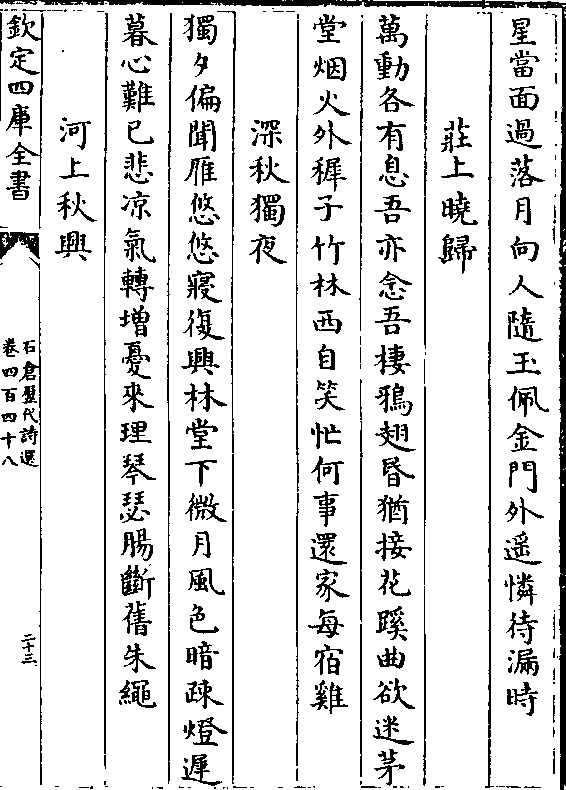 星當面過落月向人隨玉佩金門外遥憐待漏時
莊上曉歸
萬動各有息吾亦念吾棲鴉翅昏猶接花蹊曲欲迷茅
堂烟火外穉子竹林西自笑忙何事還家每宿雞
深秋獨夜
獨夕偏聞雁悠悠寢復興林堂下微月風色暗疎燈遲
暮心難已悲凉氣轉增憂來理琴瑟腸斷舊朱繩
河上秋興
欽定四庫全書
石倉歷代詩選
卷四百四十八
二十三